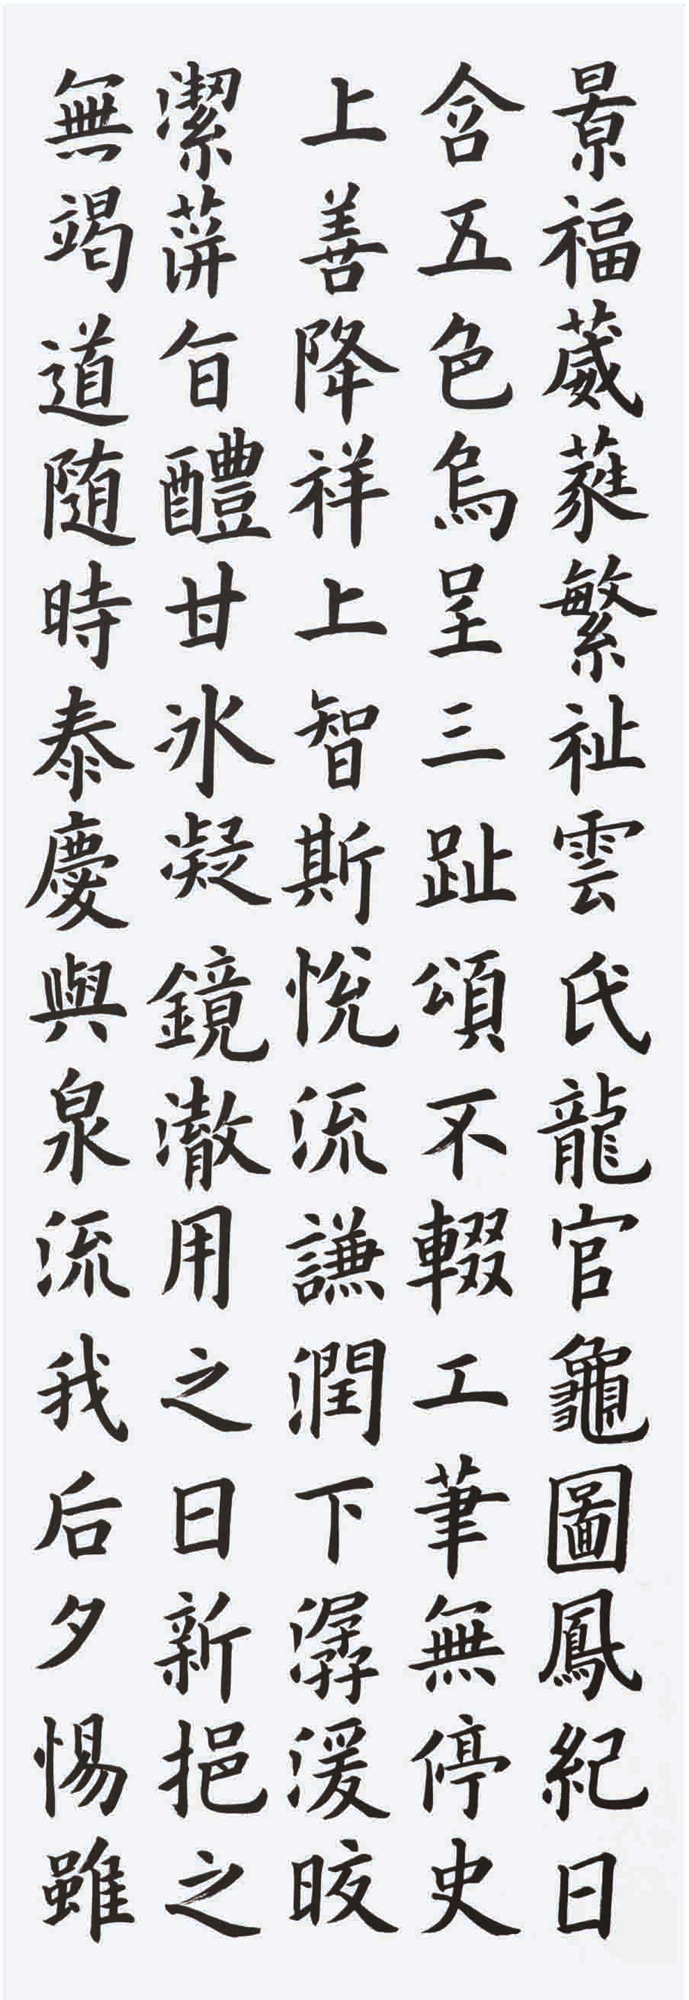 景福葳蕤繁祉雲氏龍官龜圖鳳紀日
含五色烏呈三趾頌不輟工筆無停史
上善降祥上智斯悅流謙潤下潺湲皎
潔蓱旨醴甘冰凝鏡澈用之日新挹之
無竭道隨時泰慶與泉流我后夕惕雖